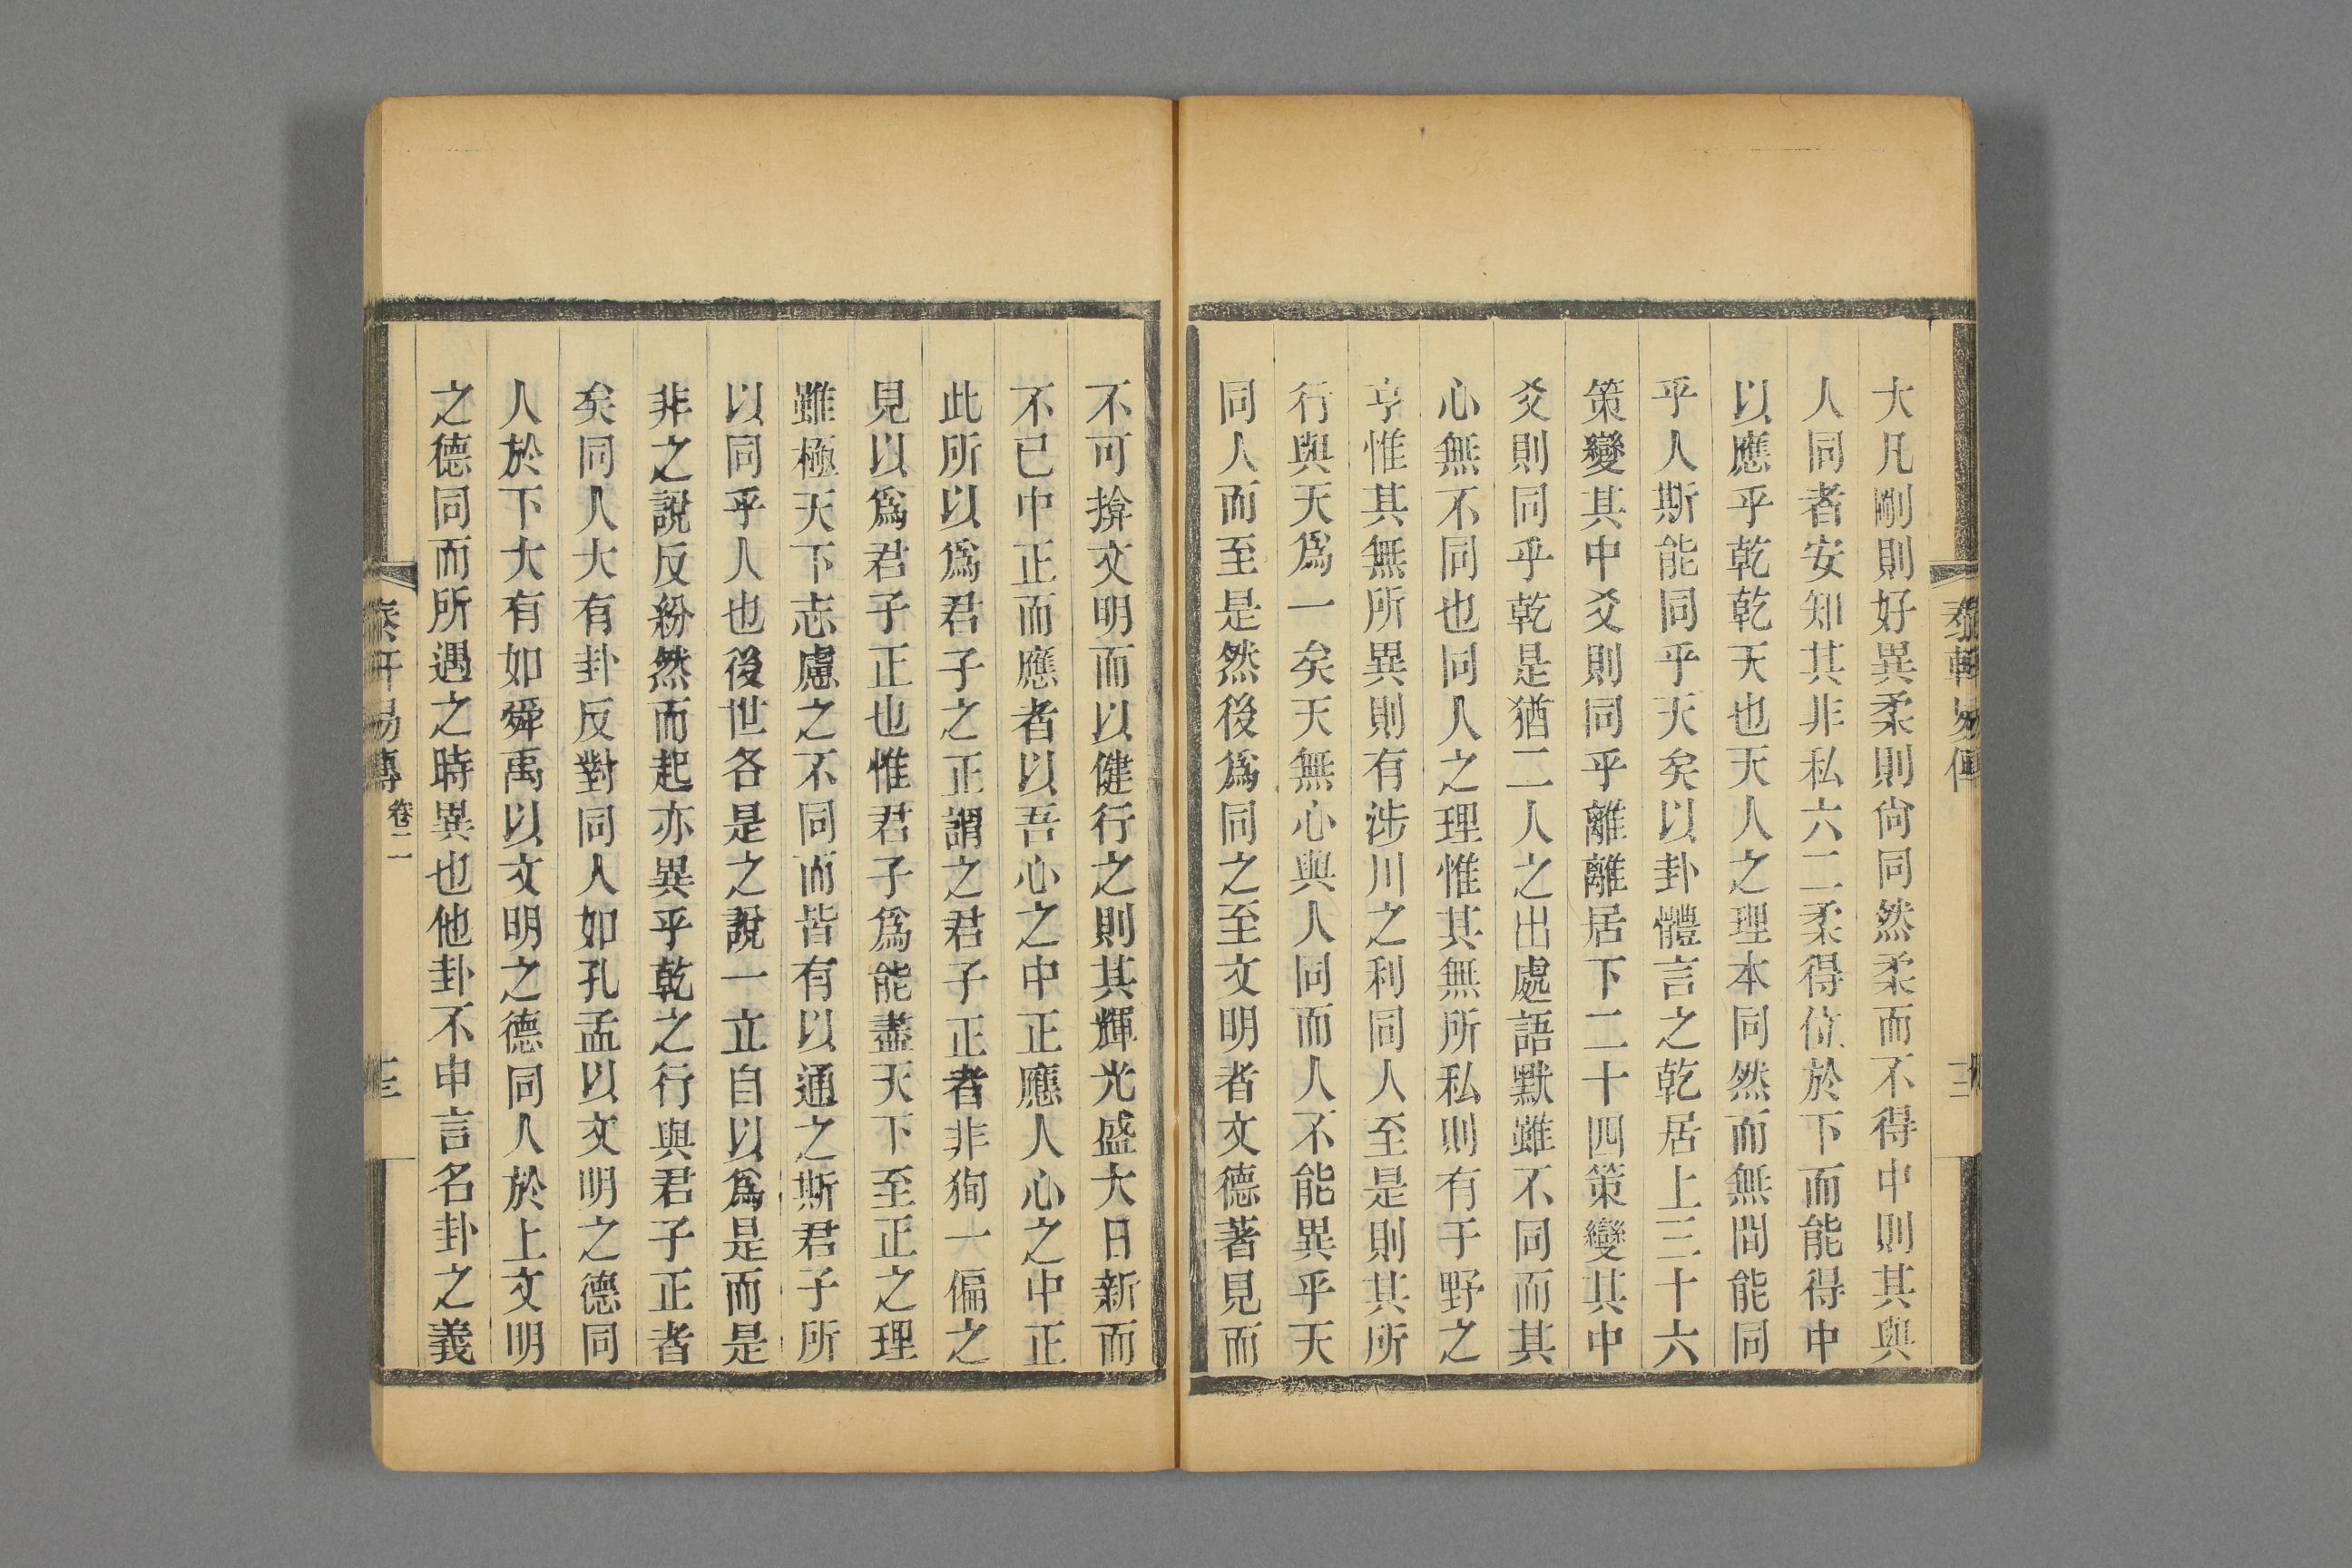 大凡剛則好異柔則尙同然柔而不得中則其與
人同者安知其非私六二柔得位於下而能得中
以應乎乾乾天也天人之理本同然而無間能同
乎人斯能同乎天矣以卦體言之乾居上三十六
策變其中爻則同乎離離居下二十四策變其中
爻則同乎乾是猶二人之出處語默雖不同而其
心無不同也同人之理惟其無所私則有于野之
亨惟其無所異則有涉川之利同人至是則其所
行與天爲一矣天無心與人同而人不能異乎天
同人而至是然後爲同之至文明者文德著見而
不可揜文明而以健行之則其輝光盛大日新而
不已中正而應者以吾心之中正應人心之中正
此所以爲君子之正謂之君子正者非狥一偏之
見以爲君子正也惟君子爲能盡天下至正之理
雖極天下志慮之不同而皆有以通之斯君子所
以同乎人也後世各是之說一立自以爲是而是
非之說反紛然而起亦異乎乾之行與君子正者
矣同人大有卦反對同人如孔孟以文明之德同
人於下大有如舜禹以文明之德同人於上文明
之德同而所遇之時異也他卦不申言名卦之義
易傳
卷二